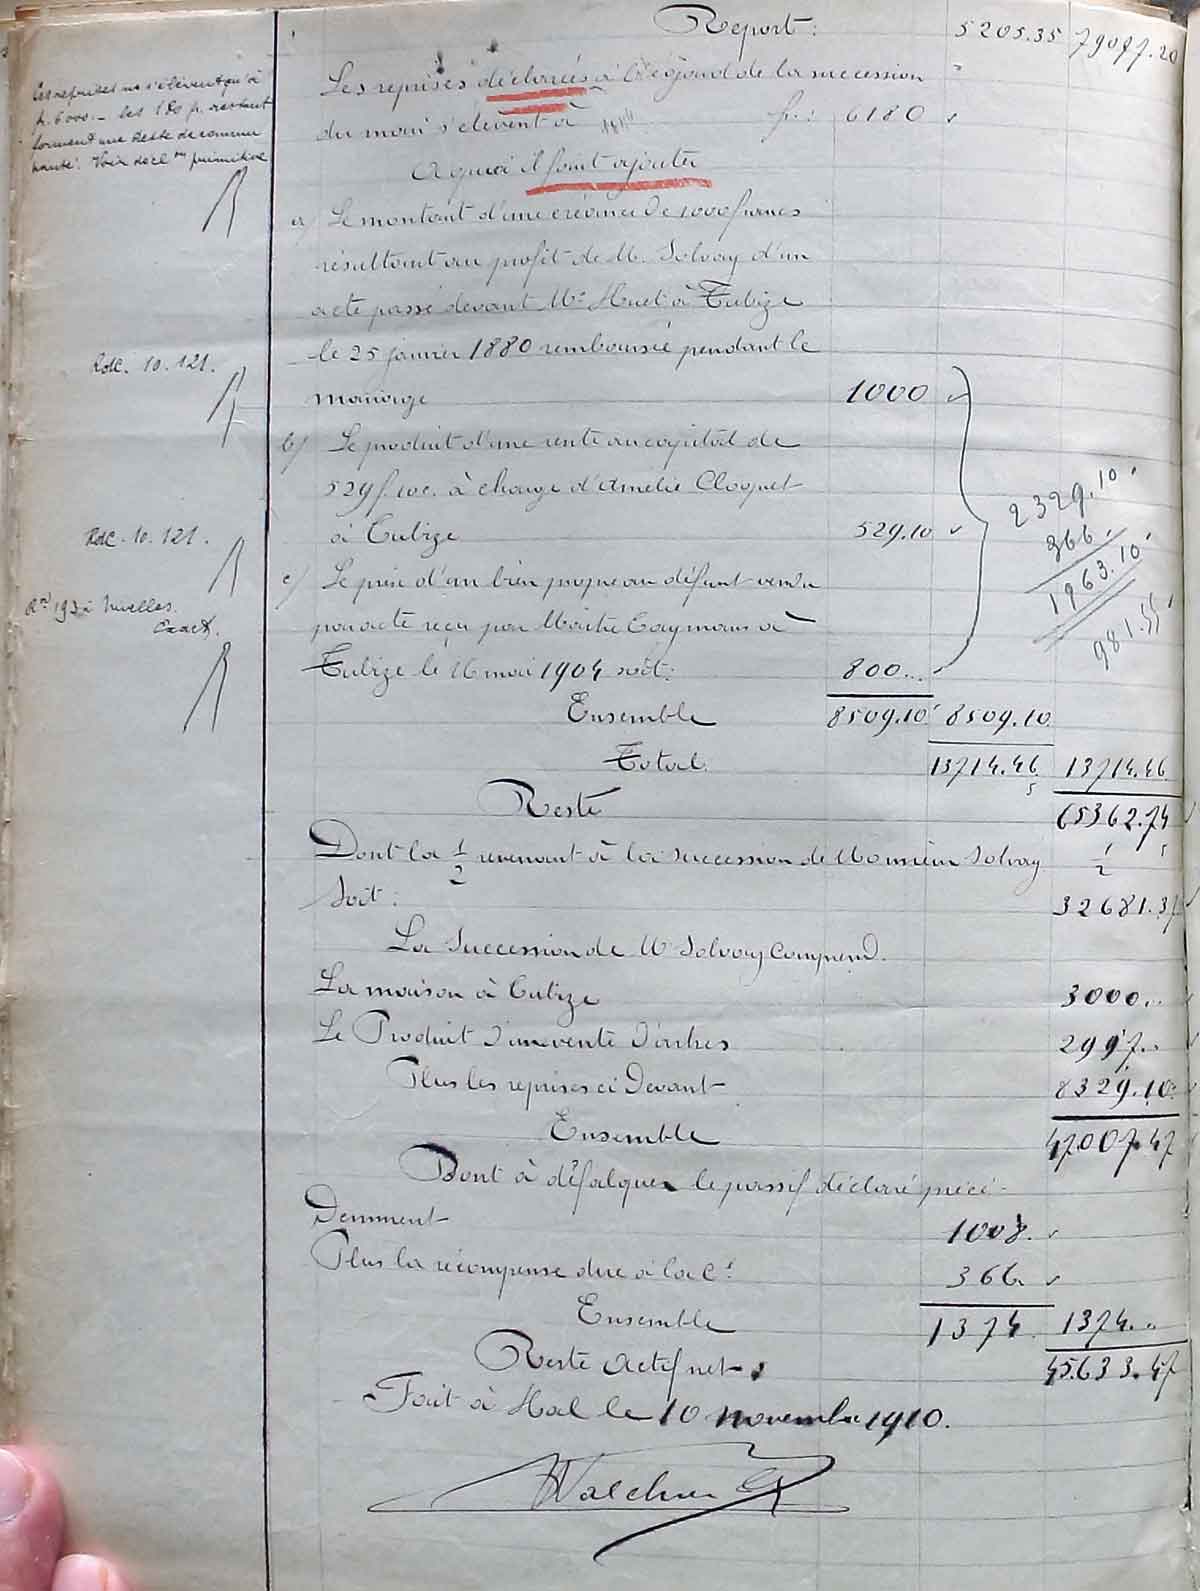 Report : 5205.35 79077.20
Les reprises déclarées à l'égard de la succession
du mari s'élèvent à fr.: 6180
A quoi il faut ajouter
Les reprises ne s'élèvent qu'à
fr. 6000.- les 180 fr. restant
forment une dette de commu
nauté. Voir décl.on primitive
a) Le montant d'une créance de 1000 francs
résultant au profit de M. Solvay d'un
acte passé devant Me Huet à Tubize
le 25 janvier 1880 remboursée pendant le
mariage 1000
Rdc. 10. 121.
b) Le produit d'une rente au capital de
529 f. 10c. à charge d'Amélie Cloquet
à Tubize 529.10
Rdc. 10. 121.
c) Le prix d'un bien propre au défunt vendu
par acte reçu par Maître Taymans à
Tubize le 16 mai 1904 soit: 800..
193 à Nivelles.
Exact.
2329.10
366.
1963.10
981.55
Ensemble 8509.10 8509.10
Total. 13714.46 13714.46
5
Reste 65362.74
5
Dont la 1/2 revenant à la succession de Monsieur Solvay 1/2
Soit : 32681.37
La Succession de M Solvay comprend.
La maison à Tubize 3000..
Le Produit d'une vente d'arbres 2997..
Plus les reprises ci devant 8329.10
Ensemble 47.007.47
Dont à défalquer le passif déclaré précé-
demment 1008.
Plus la récompense due à la Cé 366.
Ensemble 1374. 1374..
Reste actif net. 45.633.47
Fait à Hal le 10 novembre 1910.